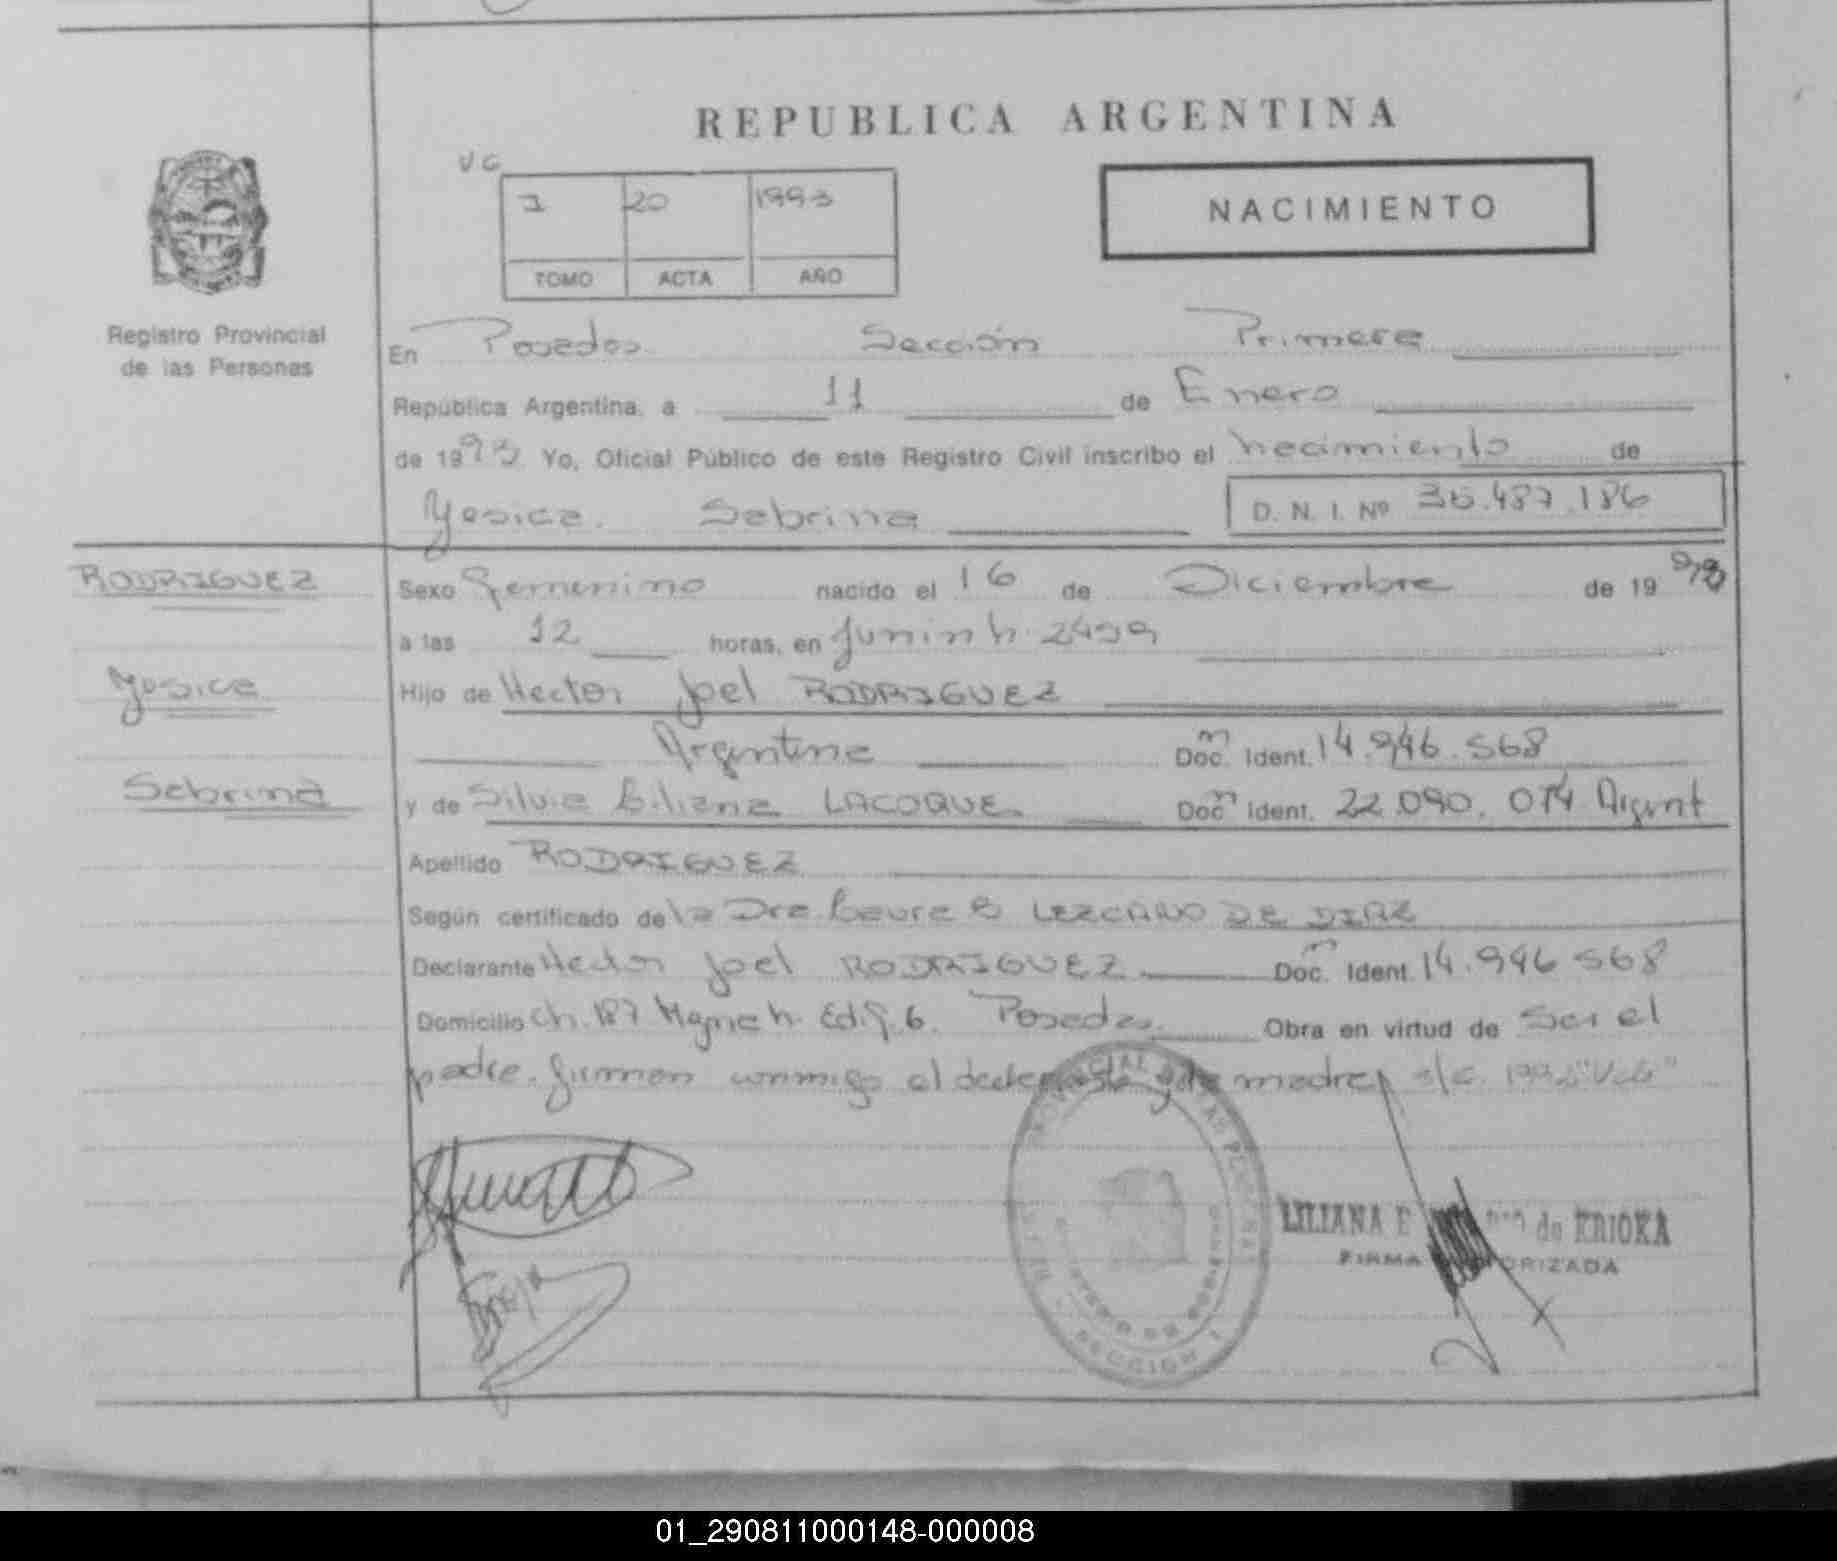 REPUBLICA ARGENTINA
VG
1 20 1993
TOMO ACTA AÑO
NACIMIENTO
Registro Provincial
de las Personas
En Posadas Sección Primera
República Argentina, a 11 de Enero
de 1993 Yo, Oficial Público de este Registro Civil inscribo el nacimiento de
Yesica Sabrina D. N. I. Nº 36.487.186
RODRIGUEZ
Yesica
Sabrina
Sexo Femenino nacido el 16 de Diciembre de 19
a las 12 horas, en Junin n. 2499
Hijo de Hector Joel RODRIGUEZ
Argentina Doc. Ident. 14.946.568
y de Silvia Liliana LACOQUE Doc. Ident. 22.090.074 Argent
Apellido RODRIGUEZ
Según certificado de la Dra. Laura B LEZCANO DE DIAZ
Declarante Hector Joel RODRIGUEZ Doc. Ident. 14.946 568
Domicilio Ch. 187 Edif. 6. Posadas Obra en virtud de Ser el
padre. firman conmigo el declarante y la madre
SECCION
LILIANA E de KRIOKA
FIRMA AUTORIZADA
01_290811000148-000008